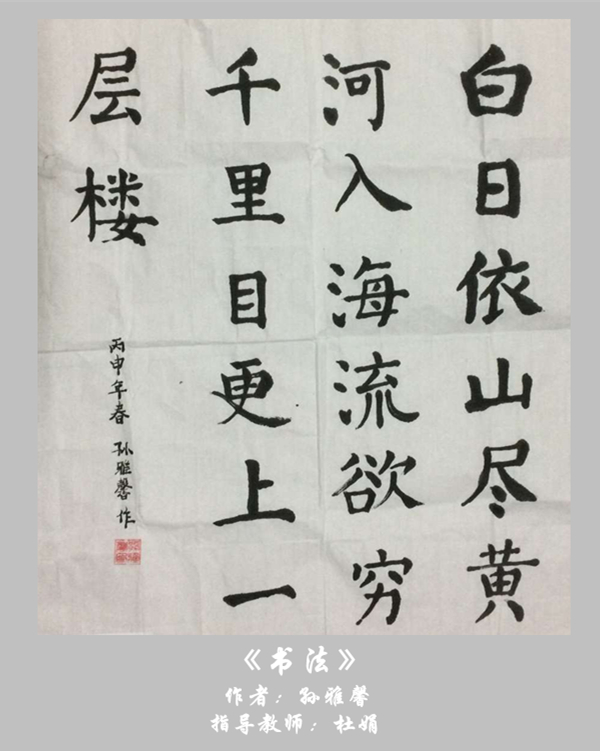 白日依山尽黄
河入海流欲穷
千里目更上一
层楼
丙申年春 孙雅馨 作
《书法》
作者：孙雅馨
指导教师：杜娟